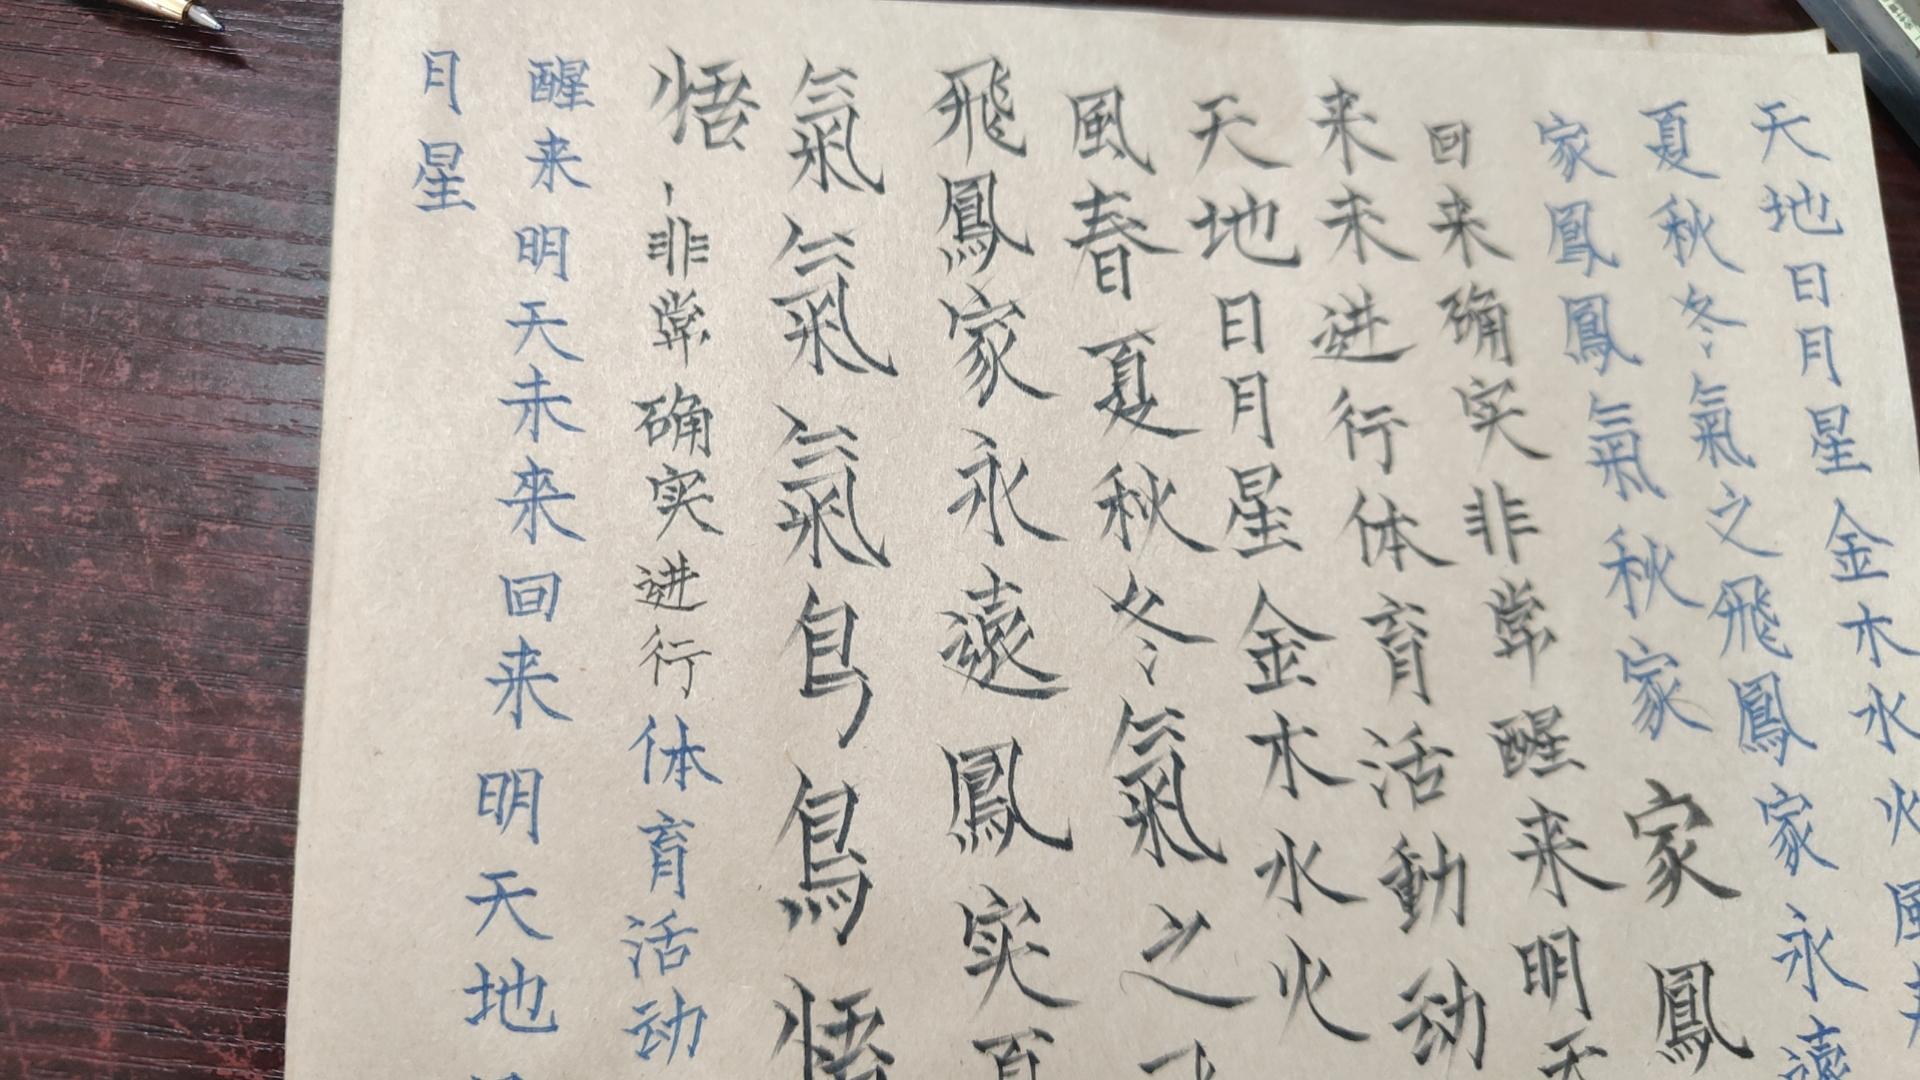 天地日月星金木水火風
夏秋冬氣之飛鳳家永遠
家鳳鳳氣秋家家鳳
回来确实非常醒来明天
来未进行体育活動动
天地日月星金木水火
風春夏秋冬氣之
飛鳳家永遠鳳实夏
氣氣氣鳥悟
悟非常确实进行体育活动
醒来明天未來回来明天地
月星